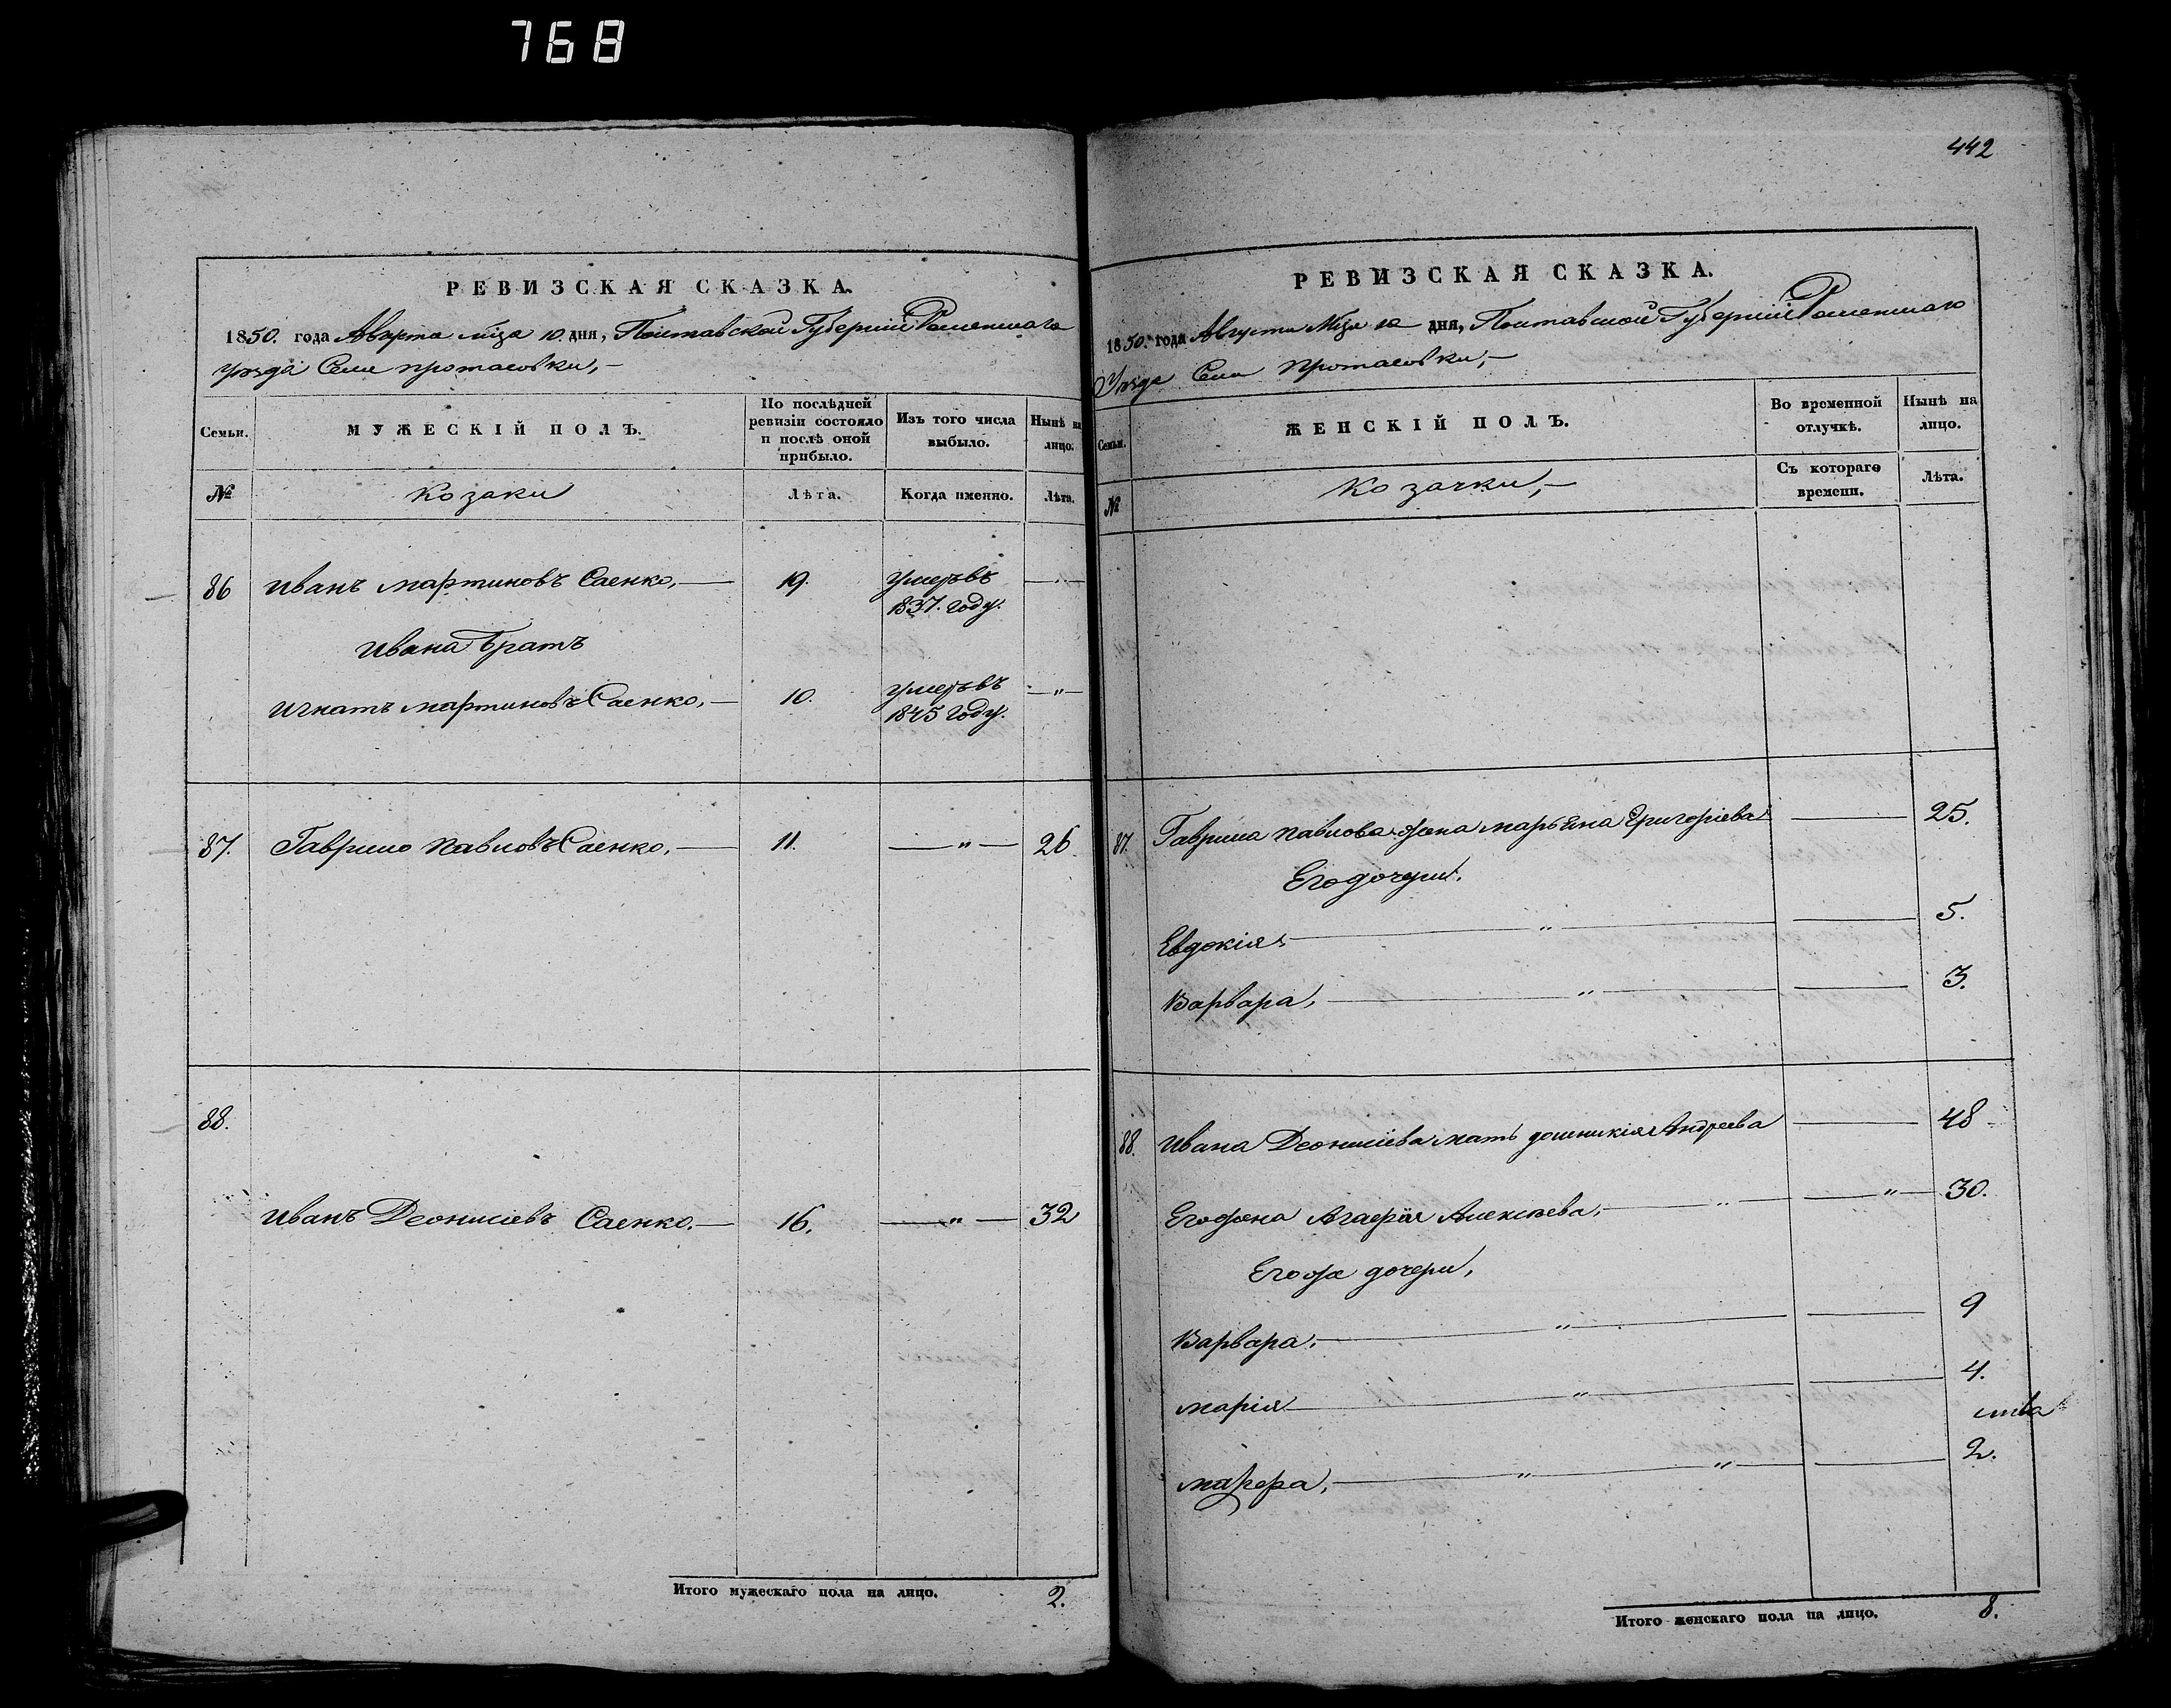 768
РЕВИЗСКАЯ СКАЗКА.
1850. года Августа мца 10 дня, Полтавской Губерніи Роменскаго
уезда Села Протасовки,
Семьи.
МУЖЕСКІЙ ПОЛЪ.
По послѣдней ревизіи состояло и послѣ оной прибыло.
Изъ того числа выбыло.
Нынѣ на лицо.
№
Козаки
Лѣта.
Когда именно.
Лѣта.
86 Иванъ Мартиновъ Саенко, 19. умеръ въ 1837. году. — " —
Ивана братъ
Игнатъ Мартиновъ Саенко, 10. умеръ въ 1845 году. — " —
87. Гаврило Павловъ Саенко, 11. — " — 26
88.
Иванъ Деонисіевъ Саенко. 16. — " — 32
Итого мужескаго пола на лицо. 2.
442
РЕВИЗСКАЯ СКАЗКА.
1850. года Августа Мца 10 дня, Полтавской Губерніи Роменскаго
Уезда Села Протасовки,
Семьи.
ЖЕНСКІЙ ПОЛЪ.
Во временной отлучкѣ.
Нынѣ на лицо.
№
Козачки,
Съ котораго времени.
Лѣта.
87. Гаврила Павлова жена Марьяна Григоріева — 25.
Его дочери.
Евдокія, — " — 5.
Варвара, — " — 3.
88. Ивана Деонисіева мать Домникія Андреева — 48
Его жена Агафія Алексѣева, — " — 30.
Его же дочери,
Варвара, — " — 9
Марія — " — 4.
2.
Итого женскаго пола на лицо. 8.